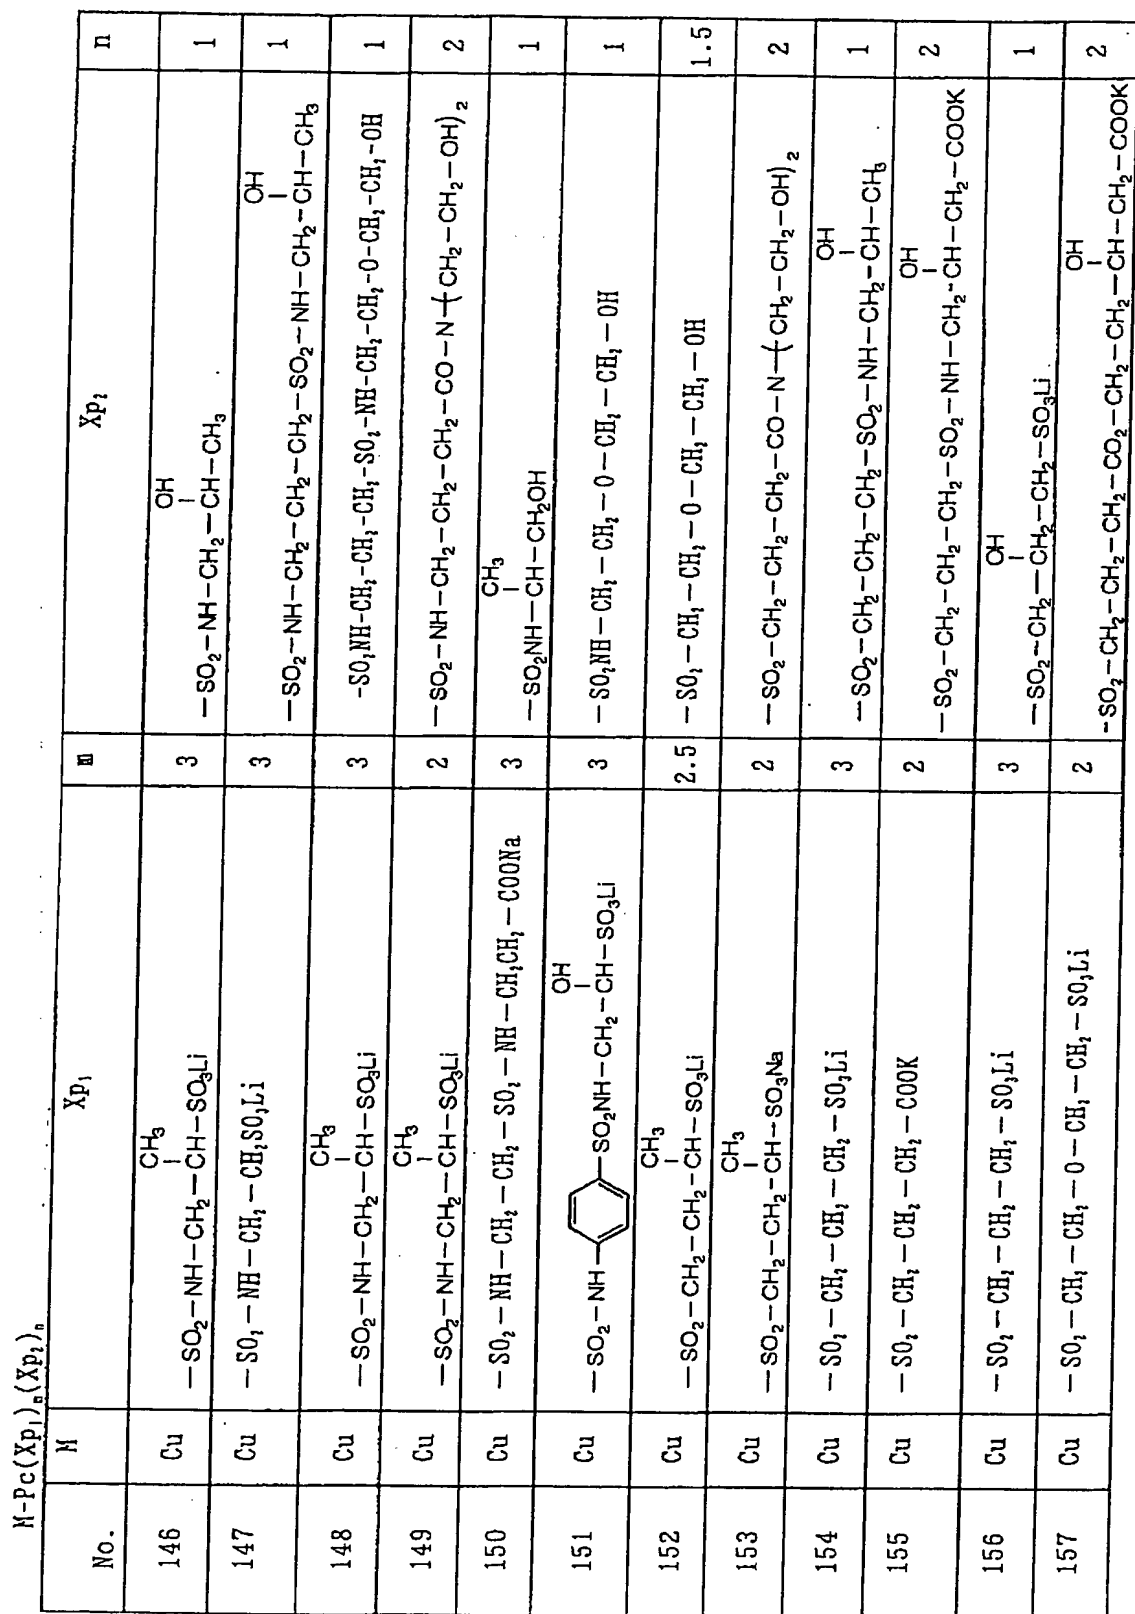 M-Pc(Xp₁)ₘ(Xp₂)ₙ
No. M Xp₁ m Xp₂ n
CH₃ OH
146 Cu —SO₂—NH—CH₂—CH—SO₃Li 3 —SO₂—NH—CH₂—CH—CH₃ 1
OH
147 Cu —SO₂—NH—CH₂—CH₂SO₃Li 3 —SO₂—NH—CH₂—CH₂—CH₂—SO₂—NH—CH₂—CH—CH₃ 1
CH₃
148 Cu —SO₂—NH—CH₂—CH—SO₃Li 3 -SO₂NH-CH₂-CH₂-SO₂-NH-CH₂-CH₂-O-CH₂-CH₂-OH 1
CH₃
149 Cu —SO₂—NH—CH₂—CH—SO₃Li 2 —SO₂—NH—CH₂—CH₂—CH₂—CO—N—(CH₂—CH₂—OH)₂ 2
CH₃
150 Cu —SO₂—NH—CH₂—CH₂—SO₂—NH—CH₂CH₂—COONa 3 —SO₂NH—CH—CH₂OH 1
OH
151 Cu —SO₂—NH— —SO₂NH—CH₂—CH—SO₃Li 3 —SO₂NH—CH₂—CH₂—O—CH₂—CH₂—OH 1
CH₃
152 Cu —SO₂—CH₂—CH₂—CH—SO₃Li 2.5 —SO₂—CH₂—CH₂—O—CH₂—CH₂—OH 1.5
CH₃
153 Cu —SO₂—CH₂—CH₂—CH—SO₃Na 2 —SO₂—CH₂—CH₂—CH₂—CO—N—(CH₂—CH₂—OH)₂ 2
OH
154 Cu —SO₂—CH₂—CH₂—CH₂—SO₃Li 3 —SO₂—CH₂—CH₂—CH₂—SO₂—NH—CH₂—CH—CH₃ 1
OH
155 Cu —SO₂—CH₂—CH₂—CH₂—COOK 2 —SO₂—CH₂—CH₂—CH₂—SO₂—NH—CH₂—CH—CH₂—COOK 2
OH
156 Cu —SO₂—CH₂—CH₂—CH₂—SO₃Li 3 —SO₂—CH₂—CH—CH₂—SO₃Li 1
OH
157 Cu —SO₂—CH₂—CH₂—O—CH₂—CH₂—SO₃Li 2 —SO₂—CH₂—CH₂—CH₂—CO₂—CH₂—CH₂—CH—CH₂—COOK 2